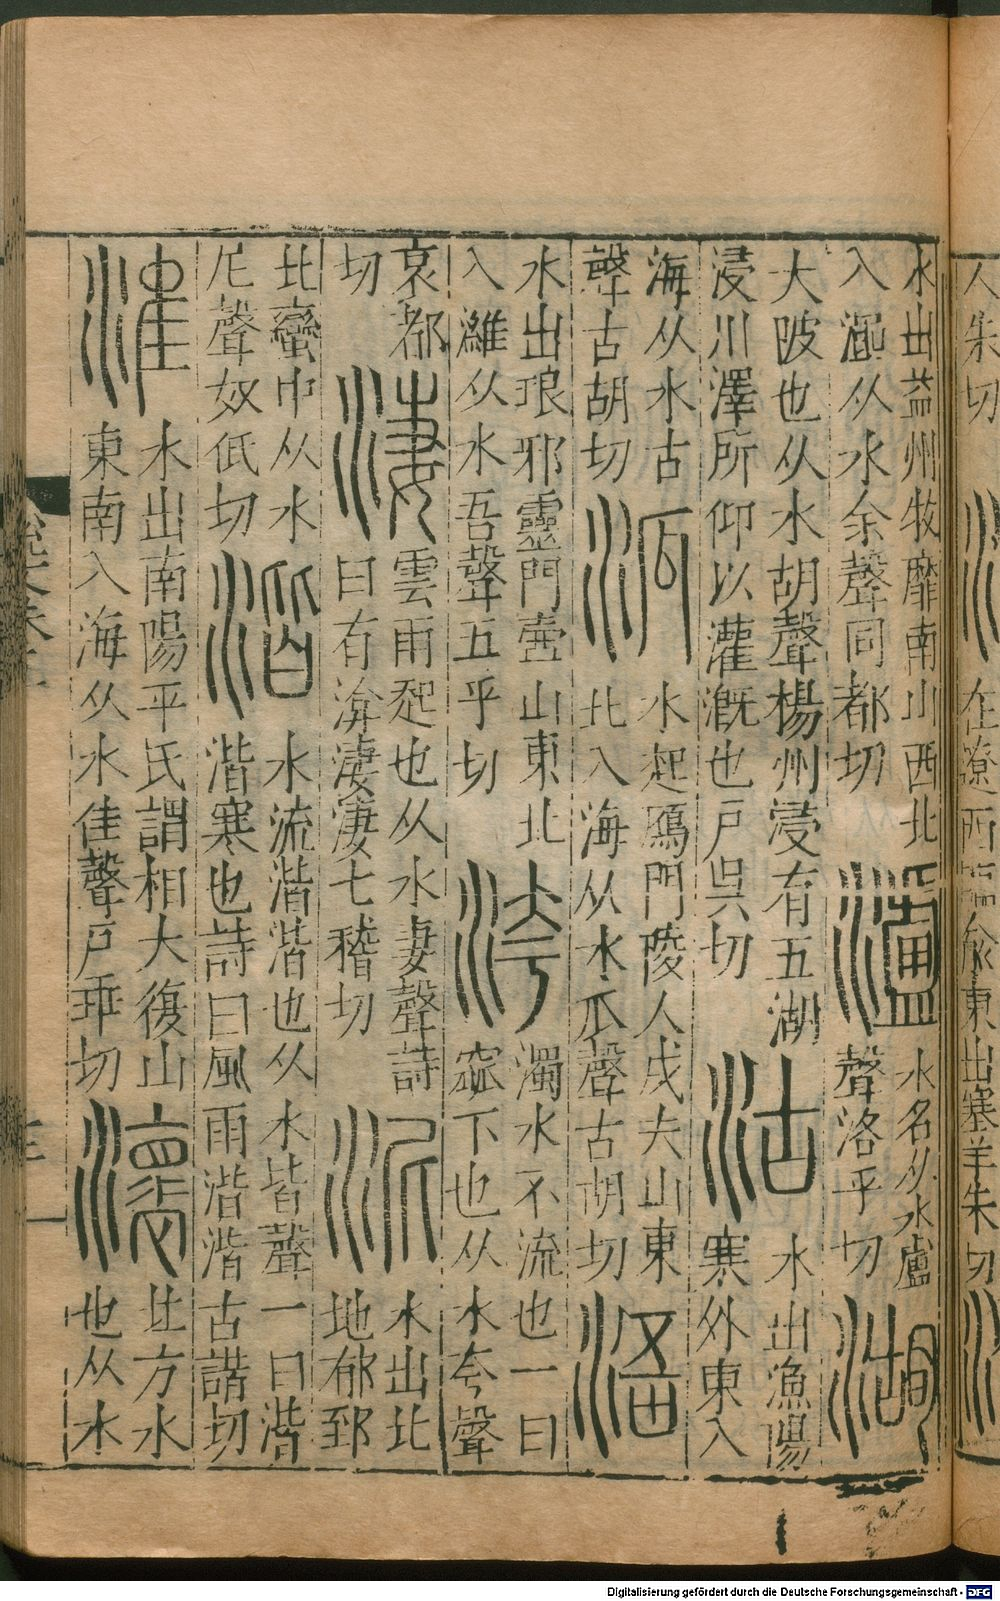 人朱切
在遼西臨俞東出塞羊朱切
水出益州牧靡南山西北
入澠从水余聲同都切
瀘
水名从水盧
聲洛乎切
湖
大陂也从水胡聲楊州浸有五湖
浸川澤所仰以灌溉也戶吳切
沽
水出漁陽
寒外東入
海从水古
聲古胡切
泒
水起鴈門陵人戍夫山東
北入海从水瓜聲古胡切
浯
水出琅邪靈門壺山東北
入濰从水吾聲五乎切
洿
濁水不流也一曰
窊下也从水夸聲
哀都
切
淒
雲雨起也从水妻聲詩
曰有渰淒淒七稽切
泥
水出北
地郁郅
北蠻中从水
尼聲奴低切
湝
水流湝湝也从水皆聲一曰湝
湝寒也詩曰風雨湝湝古諧切
淮
水出南陽平氏謂相大復山
東南入海从水隹聲戶乖切
瀤
北方水
也从水
Digitalisierung gefördert durch die Deutsche Forschungsgemeinschaft - DFG